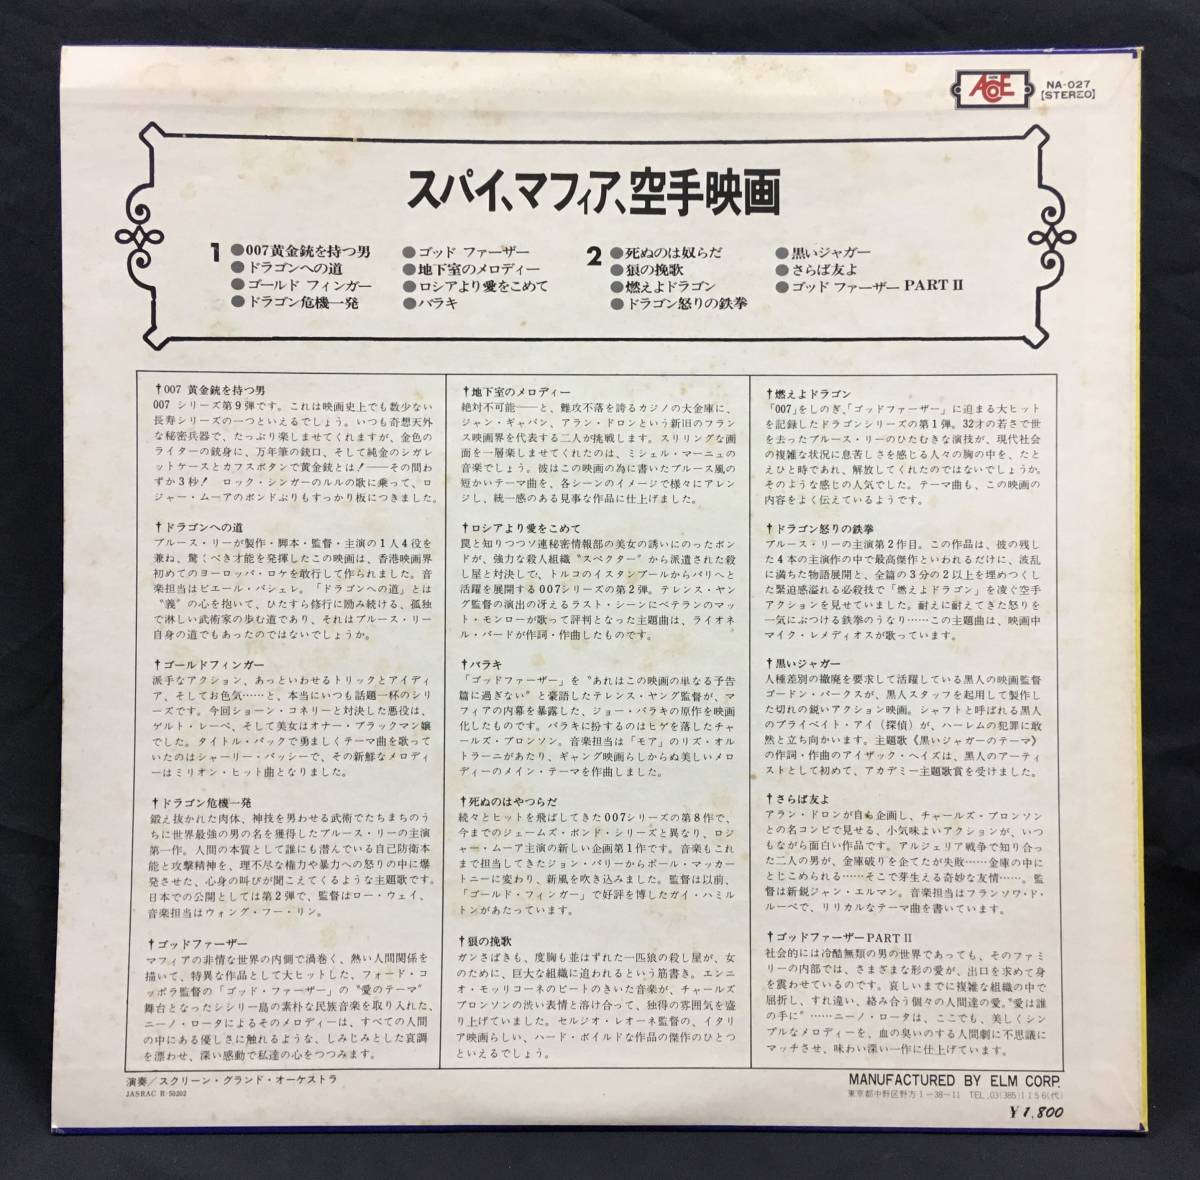 ACE
NA-027
[STEREO]
スパイ、マフィア、空手映画
1
●007黄金銃を持つ男
●ドラゴンへの道
●ゴールド フィンガー
●ドラゴン危機一発
●ゴッド ファーザー
●地下室のメロディー
●ロシアより愛をこめて
●バラキ
2
●死ぬのは奴らだ
●狼の挽歌
●燃えよドラゴン
●ドラゴン怒りの鉄拳
●黒いジャガー
●さらば友よ
●ゴッド ファーザー PART II
†007 黄金銃を持つ男
007 シリーズ第9弾です。これは映画史上でも数少ない
長寿シリーズの一つといえるでしょう。いつも奇想天外
な秘密兵器で、たっぷり楽しませてくれますが、金色の
ライターの銃身に、万年筆の銃口、そして純金のシガレ
ットケースとカフスボタンで黄金銃とは!——その間わ
ずか3秒! ロック・シンガーのルルの歌に乗って、ロ
ジャー・ムーアのボンドぶりもすっかり板につきました。
†ドラゴンへの道
ブルース・リーが製作・脚本・監督・主演の1人4役を
兼ね、驚くべき才能を発揮したこの映画は、香港映画界
初めてのヨーロッパ・ロケを敢行して作られました。音
楽担当はピエール・パシェレ。「ドラゴンへの道」とは
〝義〟の心を抱いて、ひたすら修行に励み続ける、孤独
で淋しい武術家の歩む道であり、それはブルース・リー
自身の道でもあったのではないでしょうか。
†ゴールドフィンガー
派手なアクション、あっといわせるトリックとアイディ
ア、そしてお色気……と、本当にいつも話題一杯のシリ
ーズです。今回ショーン・コネリーと対決した悪役は、
ゲルト・レーベ、そして美女はオナー・ブラックマン嬢
でした。タイトル・バックで勇ましくテーマ曲を歌って
いたのはシャーリー・バッシーで、その新鮮なメロディ
ーはミリオン・ヒット曲となりました。
†ドラゴン危機一発
鍛え抜かれた肉体、神技を男わせる武術でたちまちのう
ちに世界最強の男の名を獲得したブルース・リーの主演
第一作。人間の本質として誰にも潜んでいる自己防衛本
能と攻撃精神を、理不尽な権力や暴力への怒りの中に爆
発させた、心身の叫びが聞こえてくるような主題歌です。
日本での公開としては第2弾で、監督はロー・ウェイ、
音楽担当はウォング・フー・リン。
†ゴッドファーザー
マフィアの非情な世界の内側で渦巻く、熱い人間関係を
描いて、特異な作品として大ヒットした、フォード・コ
ッポラ監督の「ゴッド・ファーザー」の〝愛のテーマ〟
舞台となったシシリー島の素朴な民族音楽を取り入れた、
ニーノ・ロータによるそのメロディーは、すべての人間
の中にある優しさに触れるような、しみじみとした哀調
を漂わせ、深い感動で私達の心をつつみます。
†地下室のメロディー
絶対不可能——と、難攻不落を誇るカジノの大金庫に、
ジャン・ギャバン、アラン・ドロンという新旧のフラン
ス映画界を代表する二人が挑戦します。スリリングな画
面を一層楽しませてくれたのは、ミシェル・マーニュの
音楽でしょう。彼はこの映画の為に書いたブルース風の
短かいテーマ曲を、各シーンのイメージで様々にアレン
ジし、統一感のある見事な作品に仕上げました。
†ロシアより愛をこめて
罠と知りつつソ連秘密情報部の美女の誘いにのったボン
ドが、強力な殺人組織〝スペクター〟から派遣された殺
し屋と対決して、トルコのイスタンブールからパリへと
活躍を展開する007シリーズの第2弾。テレンス・ヤン
グ監督の演出の冴えるラスト・シーンにベテランのマッ
ト・モンローが歌って評判となった主題曲は、ライオネ
ル・バードが作詞・作曲したものです。
†バラキ
「ゴッドファーザー」を〝あれはこの映画の単なる予告
篇に過ぎない〟と豪語したテレンス・ヤング監督が、マ
フィアの内幕を暴露した、ジョー・バラキの原作を映画
化したものです。バラキに扮するのはヒゲを落したチャ
ールズ・ブロンソン。音楽担当は「モア」のリズ・オル
トラーニがあたり、ギャング映画らしからぬ美しいメロ
ディーのメイン・テーマを作曲しました。
†死ぬのはやつらだ
続々とヒットを飛ばしてきた007シリーズの第8作で、
今までのジェームズ・ボンド・シリーズと異なり、ロジ
ャー・ムーア主演の新しい企画第1作です。音楽もこれ
まで担当してきたジョン・バリーからポール・マッカー
トニーに変わり、新風を吹き込みました。監督は以前、
「ゴールド・フィンガー」で好評を博したガイ・ハミル
トンがあたっています。
†狼の挽歌
ガンさばきも、度胸も並はずれた一匹狼の殺し屋が、女
のために、巨大な組織に追われるという筋書き。エンニ
オ・モッリコーネのビートのきいた音楽が、チャールズ
ブロンソンの渋い表情と溶け合って、独得の雰囲気を盛
り上げていました。セルジオ・レオーネ監督の、イタリ
ア映画らしい、ハード・ボイルドな作品の傑作のひとつ
といえるでしょう。
†燃えよドラゴン
「007」をしのぎ、「ゴッドファーザー」に迫まる大ヒット
を記録したドラゴンシリーズの第1弾。32才の若さで世
を去ったブルース・リーのひたむきな演技が、現代社会
の複雑な状況に息苦しさを感じる人々の胸の中を、たと
えひと時であれ、解放してくれたのではないでしょうか。
そのような感じの人気でした。テーマ曲も、この映画の
内容をよく伝えているようです。
†ドラゴン怒りの鉄拳
ブルース・リーの主演第2作目。この作品は、彼の残し
た4本の主演作の中で最高傑作といわれるだけに、波乱
に満ちた物語展開と、全篇の3分の2以上を埋めつくし
た緊迫感溢れる必殺技で「燃えよドラゴン」を凌ぐ空手
アクションを見せていました。耐えに耐えてきた怒りを
一気にぶつける鉄拳のうなり……この主題曲は、映画中
マイク・レメディオスが歌っています。
†黒いジャガー
人種差別の撤廃を要求して活躍している黒人の映画監督
ゴードン・パークスが、黒人スタッフを起用して製作し
た切れの鋭いアクション映画。シャフトと呼ばれる黒人
のプライベイト・アイ(探偵)が、ハーレムの犯罪に敢
然と立ち向かいます。主題歌《黒いジャガーのテーマ》
の作詞・作曲のアイザック・ヘイズは、黒人のアーティ
ストとして初めて、アカデミー主題歌賞を受けました。
†さらば友よ
アラン・ドロンが自ら企画し、チャールズ・ブロンソン
との名コンビで見せる、小気味よいアクションが、いつ
もながら面白い作品です。アルジェリア戦争で知り合っ
た二人の男が、金庫破りを企てたが失敗……金庫の中に
とじこめられる……そこで芽生える奇妙な友情……。監
督は新鋭ジャン・エルマン。音楽担当はフランソワ・ド・
ルーベで、リリカルなテーマ曲を書いています。
†ゴッドファーザーPART II
社会的には冷酷無類の男の世界であっても、そのファミ
リーの内部では、さまざまな形の愛が、出口を求めて身
を震わせているのです。哀しいまでに複雑な組織の中で
屈折し、すれ違い、絡み合う個々の人間達の愛。〝愛は誰
の手に〟……ニーノ・ロータは、ここでも、美しくシン
プルなメロディーを、血の臭いのする人間劇に不思議に
マッチさせ、味わい深い一作に仕上げています。
演奏/スクリーン・グランド・オーケストラ
JASRAC R-50202
MANUFACTURED BY ELM CORP.
東京都中野区野方1-38-11 TEL.03(385)1156(代)
¥1,800